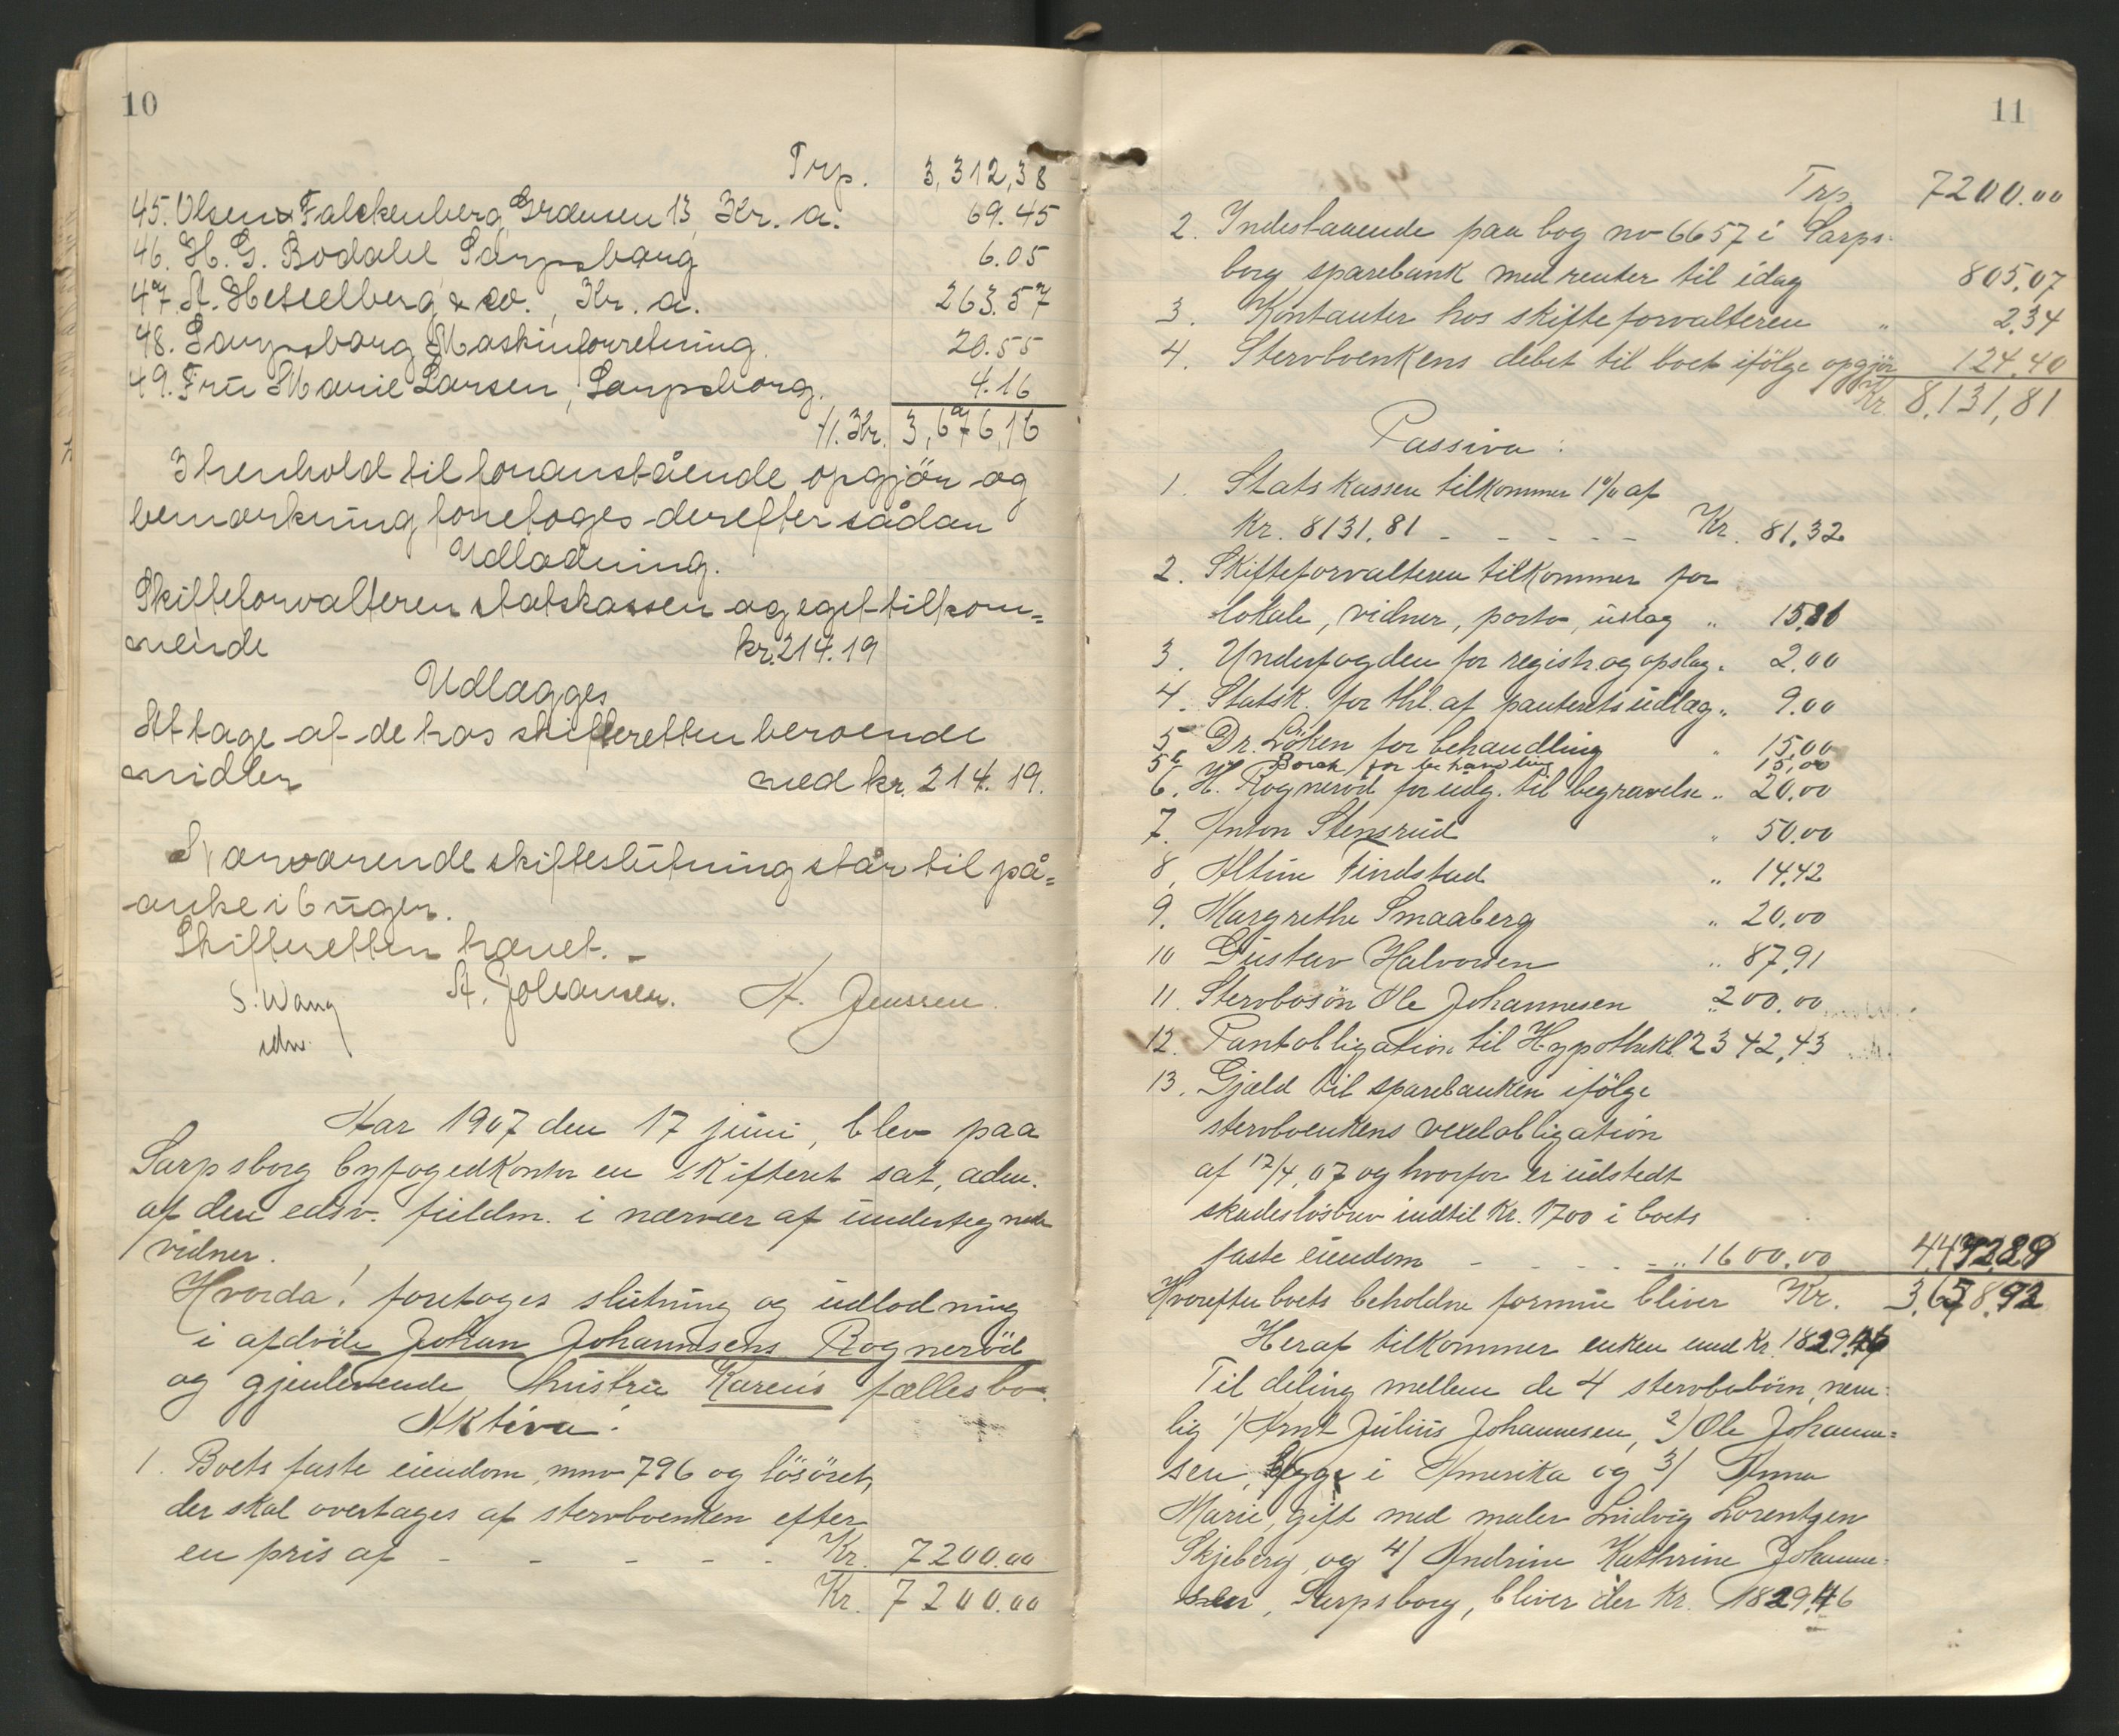 10
Trp. 3,312,38
45. Olsen & Falckenberg, Grænsen 13, Kr. a. 69.45
46. H. G. Bodahl Sarpsborg 6.05
47. A. Hesselberg & co., Kr. a. 263.57
48. Sarpsborg Maskinforretning. 20.55
49. Fru Marie Larsen, Sarpsborg. 4.16
Kr. 3,676,16
I henhold til foranstående opgjör og
bemærkning foretoges derefter sådan
Udlodning.
Skifteforvalteren statskassen og eget tilkom=
mende kr. 214.19
Udlægges
At tage af de hos skifteretten beroende
midler med kr. 214.19.
Nærværende skifteslutning står til på=
anke i 6 uger.
Skifteretten hævet. –
S. Wang A. Johansen. A. Jenssen.
edsv.
Aar 1907 den 17 juni, blev paa
Sarpsborg byfogedkontor en skifteret sat, adm.
af den edsv. fuldm. i nærvær af undertegnede
vidner.
Hvorda! foretoges slutning og udlodning
i afdøde Johan Johannesens Rognerød
og gjenlevende hustru Karens fællesbo.
Aktiva:
1. Boets faste eiendom, mno 796 og løsøret,
der skal overtages af stervboenken efter
en pris af - - - - - Kr. 7200.00
Kr. 7200.00
11
Trp. 7200.00
2. Indestaaende paa bog no 6657 i Sarps-
borg sparebank med renter til idag 805,07
3. Kontanter hos skifteforvalteren " 2,34
4. Stervboenkens debet til boet ifölge opgjör 124,40
Kr. 8,131,81
Passiva:
1. Statskassen tilkommer 1% af
Kr. 8131,81 - - - - - Kr. 81,32
2. Skifteforvalteren tilkommer for
lokale, vidner, porto, utlag " 15,81
3. Underfogden for registr. og opslag " 2,00
4. Statsk. for thl. af panterets udlæg " 9.00
5 Dr. Löken for behandling " 15,00
5b Borch for behandling 15,00
6. H. Rognerød for udg. til begravelse " 20,00
7. Anton Stensrud " 50.00
8, Altine Tindstad " 14,42
9. Margrethe Smaaberg " 20,00
10 Gustav Halvorsen " 87,91
11. Stervbosön Ole Johannesen " 200,00
12. Pantobligation til Hypothekb. 2342,43
13. Gjæld til sparebanken ifölge
stervboenkens vexelobligation
af 17/4, 07 og hvorfor er udstedt
skadeslösbrev indtil Kr. 1700 i boets
faste eiendom - - - - " 1600.00 4,472,89
Hvorefter boets beholdne formue bliver Kr. 3,658,92
Heraf tilkommer enken med Kr. 1829,46
Til deling mellem de 4 stervbobörn, nem-
lig 1) Arnt Julius Johannesen, 2) Ole Johanne=
sen, begge i Amerika og 3) Anna
Marie, gift med maler Ludvig Lorentzen
Skjeberg, og 4) Andrine Kathrine Johanne-
sen, Sarpsborg, bliver der Kr. 1829,46